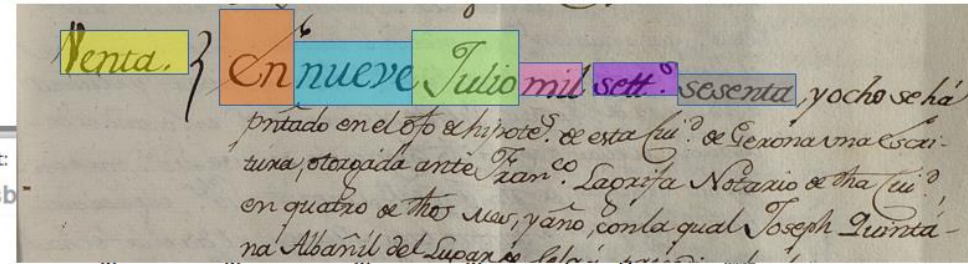 Venta. En nueve Julio mil sett.º sesenta, y ocho se há
pntado en el ofo de hipotes. de esta Ciu.d de Gerona una Escri-
tura, otorgada ante Fran.co Lagrifa Notario de dha Ciu.d,
en quatro de thos mes, y año, con la qual Joseph Quintá-
na Albañil del Lugar de
t:
sb